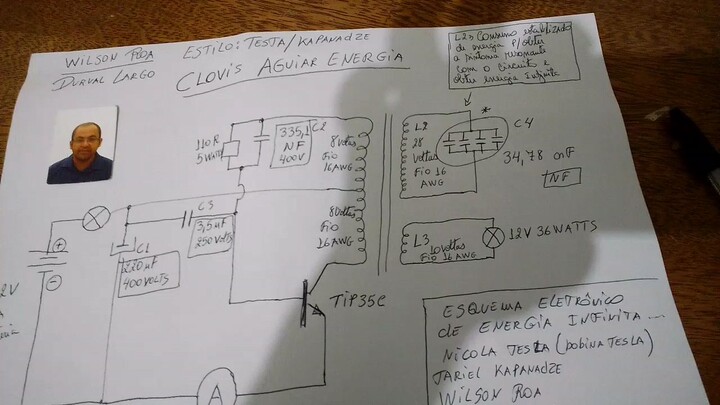 WILSON ROA
DURVAL LARGO
ESTILO: TESTA/KAPANADZE
CLOVIS AGUIAR ENERGIA
L2 > Consumo estabilizado
de energia P/obter
a sintonia resonante
com o circuito e
obter energia infinita
110R
5WATTS
335,1
NF
400V
C2
8 voltas
Fio
16 AWG
8 Voltas
Fio
16 AWG
C5
3,5uf
250Volts
C1
220uf
400VOLTS
TiP35C
A
L2
28
voltas
Fio 16
AWG
*
C4
34,78 nF
NF
L3
10 voltas
Fio 16 AWG
12V 36WATTS
2V
ESQUEMA ELETRÔNICO
de ENERGIA INFINITA...
NICOLA TESLA (bobina TESLA)
TARIEL KAPANADZE
WILSON ROA